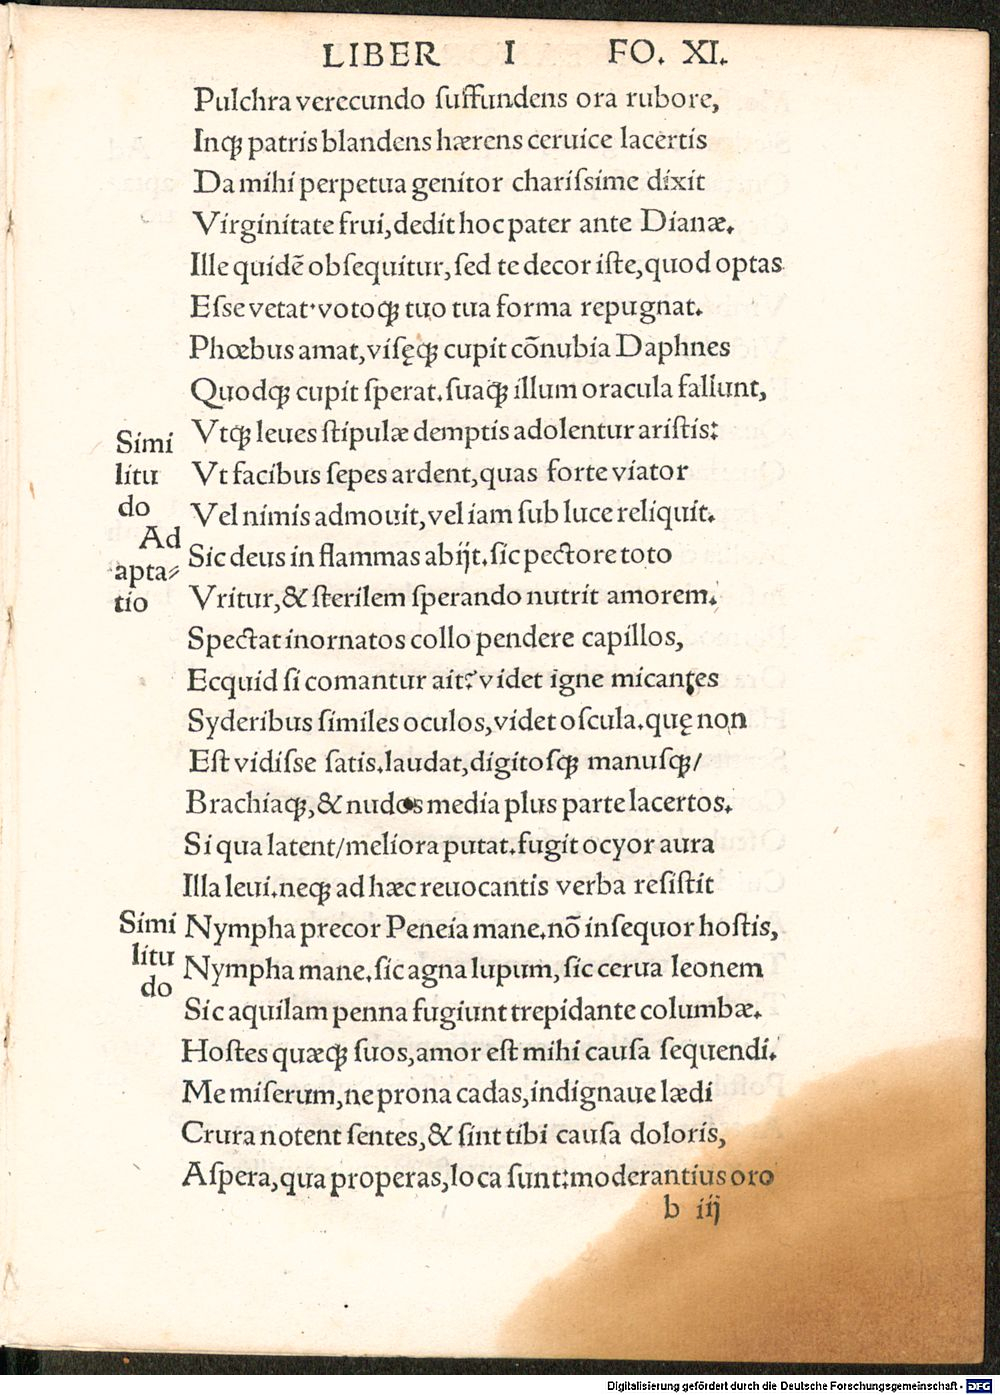 LIBER I FO. XI.
Pulchra verecundo ſuffundens ora rubore,
Inqꝫ patris blandens hærens ceruice lacertis
Da mihi perpetua genitor chariſsime dixit
Virginitate frui, dedit hoc pater ante Dianæ.
Ille quidē obſequitur, ſed te decor iſte, quod optas
Eſse vetat·votoqꝫ tuo tua forma repugnat.
Phœbus amat, viſęqꝫ cupit cōnubia Daphnes
Quodqꝫ cupit ſperat. ſuaqꝫ illum oracula fallunt,
Vtqꝫ leues ſtipulæ demptis adolentur ariſtis:
Simi
litu
do
Vt facibus ſepes ardent, quas forte viator
Vel nimis admouit, vel iam ſub luce reliquit.
Ad
apta⸗
tio
Sic deus in flammas abijt. ſic pectore toto
Vritur, & ſterilem ſperando nutrit amorem.
Spectat inornatos collo pendere capillos,
Ecquid ſi comantur ait? videt igne micantes
Syderibus ſimiles oculos, videt oſcula. quę non
Eſt vidiſse ſatis. laudat, digitoſqꝫ manuſqꝫ/
Brachiaqꝫ, & nudos media plus parte lacertos.
Si qua latent/meliora putat. fugit ocyor aura
Illa leui. neqꝫ ad hæc reuocantis verba reſiſtit
Simi
litu
do
Nympha precor Peneia mane. nō inſequor hoſtis,
Nympha mane. ſic agna lupum, ſic cerua leonem
Sic aquilam penna fugiunt trepidante columbæ.
Hoſtes quæqꝫ ſuos, amor eſt mihi cauſa ſequendi.
Me miſerum, ne prona cadas, indignaue lædi
Crura notent ſentes, & ſint tibi cauſa doloris,
Aſpera, qua properas, loca ſunt: moderantius oro
b iij
Digitalisierung gefördert durch die Deutsche Forschungsgemeinschaft - DFG